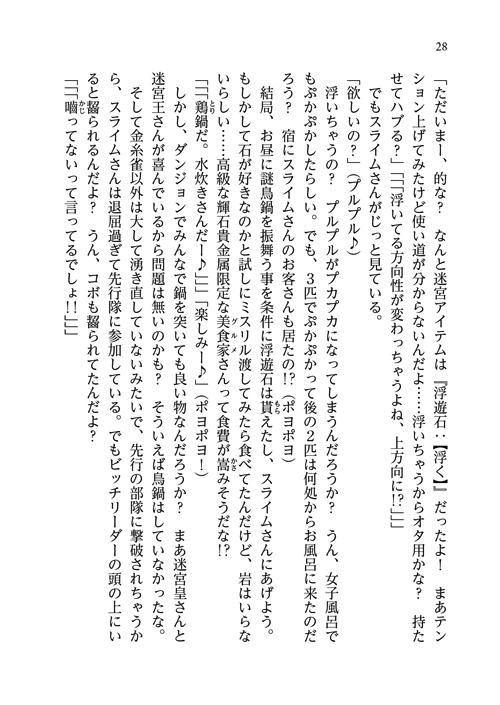 28
「ただいまー、的な？　なんと迷宮アイテムは『浮遊石：【浮く】』だったよ！　まあテン
ション上げてみたけど使い道が分からないんだよ……浮いちゃうからオタ用かな？　持た
せてハブる？」「「「浮いてる方向性が変わっちゃうよね、上方向に!?」」」
　でもスライムさんがじっと見ている。
「欲しいの？」（プルプル♪）
　浮いちゃうの？　プルプルがプカプカになってしまうんだろうか？　うん、女子風呂で
もぷかぷかしたらしい。でも、３匹でぷかぷかって後の２匹は何処からお風呂に来たのだ
ろう？　宿にスライムさんのお客さんも居たの!?（ポヨポヨ）
　結局、お昼に謎鳥鍋を振舞う事を条件に浮遊石は貰えたし、スライムさんにあげよう。
もしかして石が好きなのかと試しにミスリル渡してみたら食べてたんだけど、岩はいらな
いらしい……高級な輝石貴金属限定な美食家さんって食費が嵩みそうだな!?
「「「鶏鍋だ。水炊きさんだー♪」」」「楽しみー♪」（ポヨポヨ！）
　しかし、ダンジョンでみんなで鍋を突いても良い物なんだろうか？　まあ迷宮皇さんと
迷宮王さんが喜んでいるから問題は無いのかも？　そういえば鳥鍋はしていなかったな。
　そして金糸雀以外は大して湧き直していないみたいで、先行の部隊に撃破されちゃうか
ら、スライムさんは退屈過ぎて先行隊に参加している。でもビッチリーダーの頭の上にい
ると齧られるんだよ？　うん、コボも齧られてたんだよ？
「「「嚙ってないって言ってるでしょ!!」」」